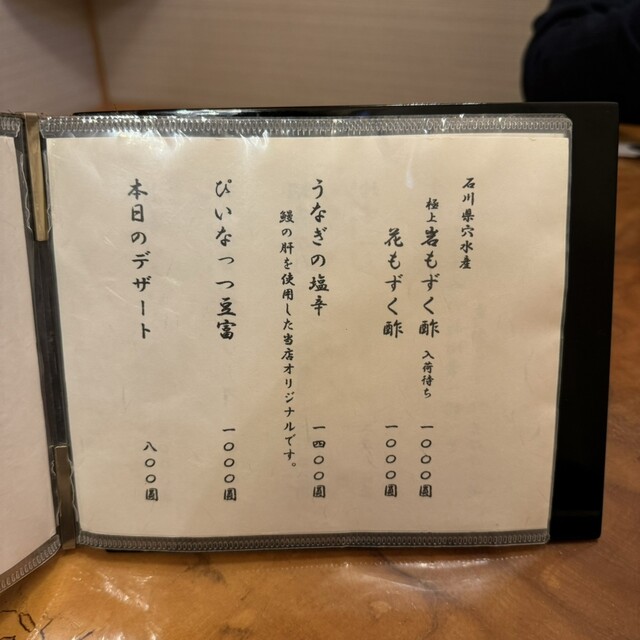 石川県穴水産
極上 岩もずく酢 入荷待ち 一〇〇〇圓
花もずく酢 一〇〇〇圓
うなぎの塩辛 一四〇〇圓
鰻の肝を使用した当店オリジナルです。
ぴいなっつ豆富 一〇〇〇圓
本日のデザート 八〇〇圓